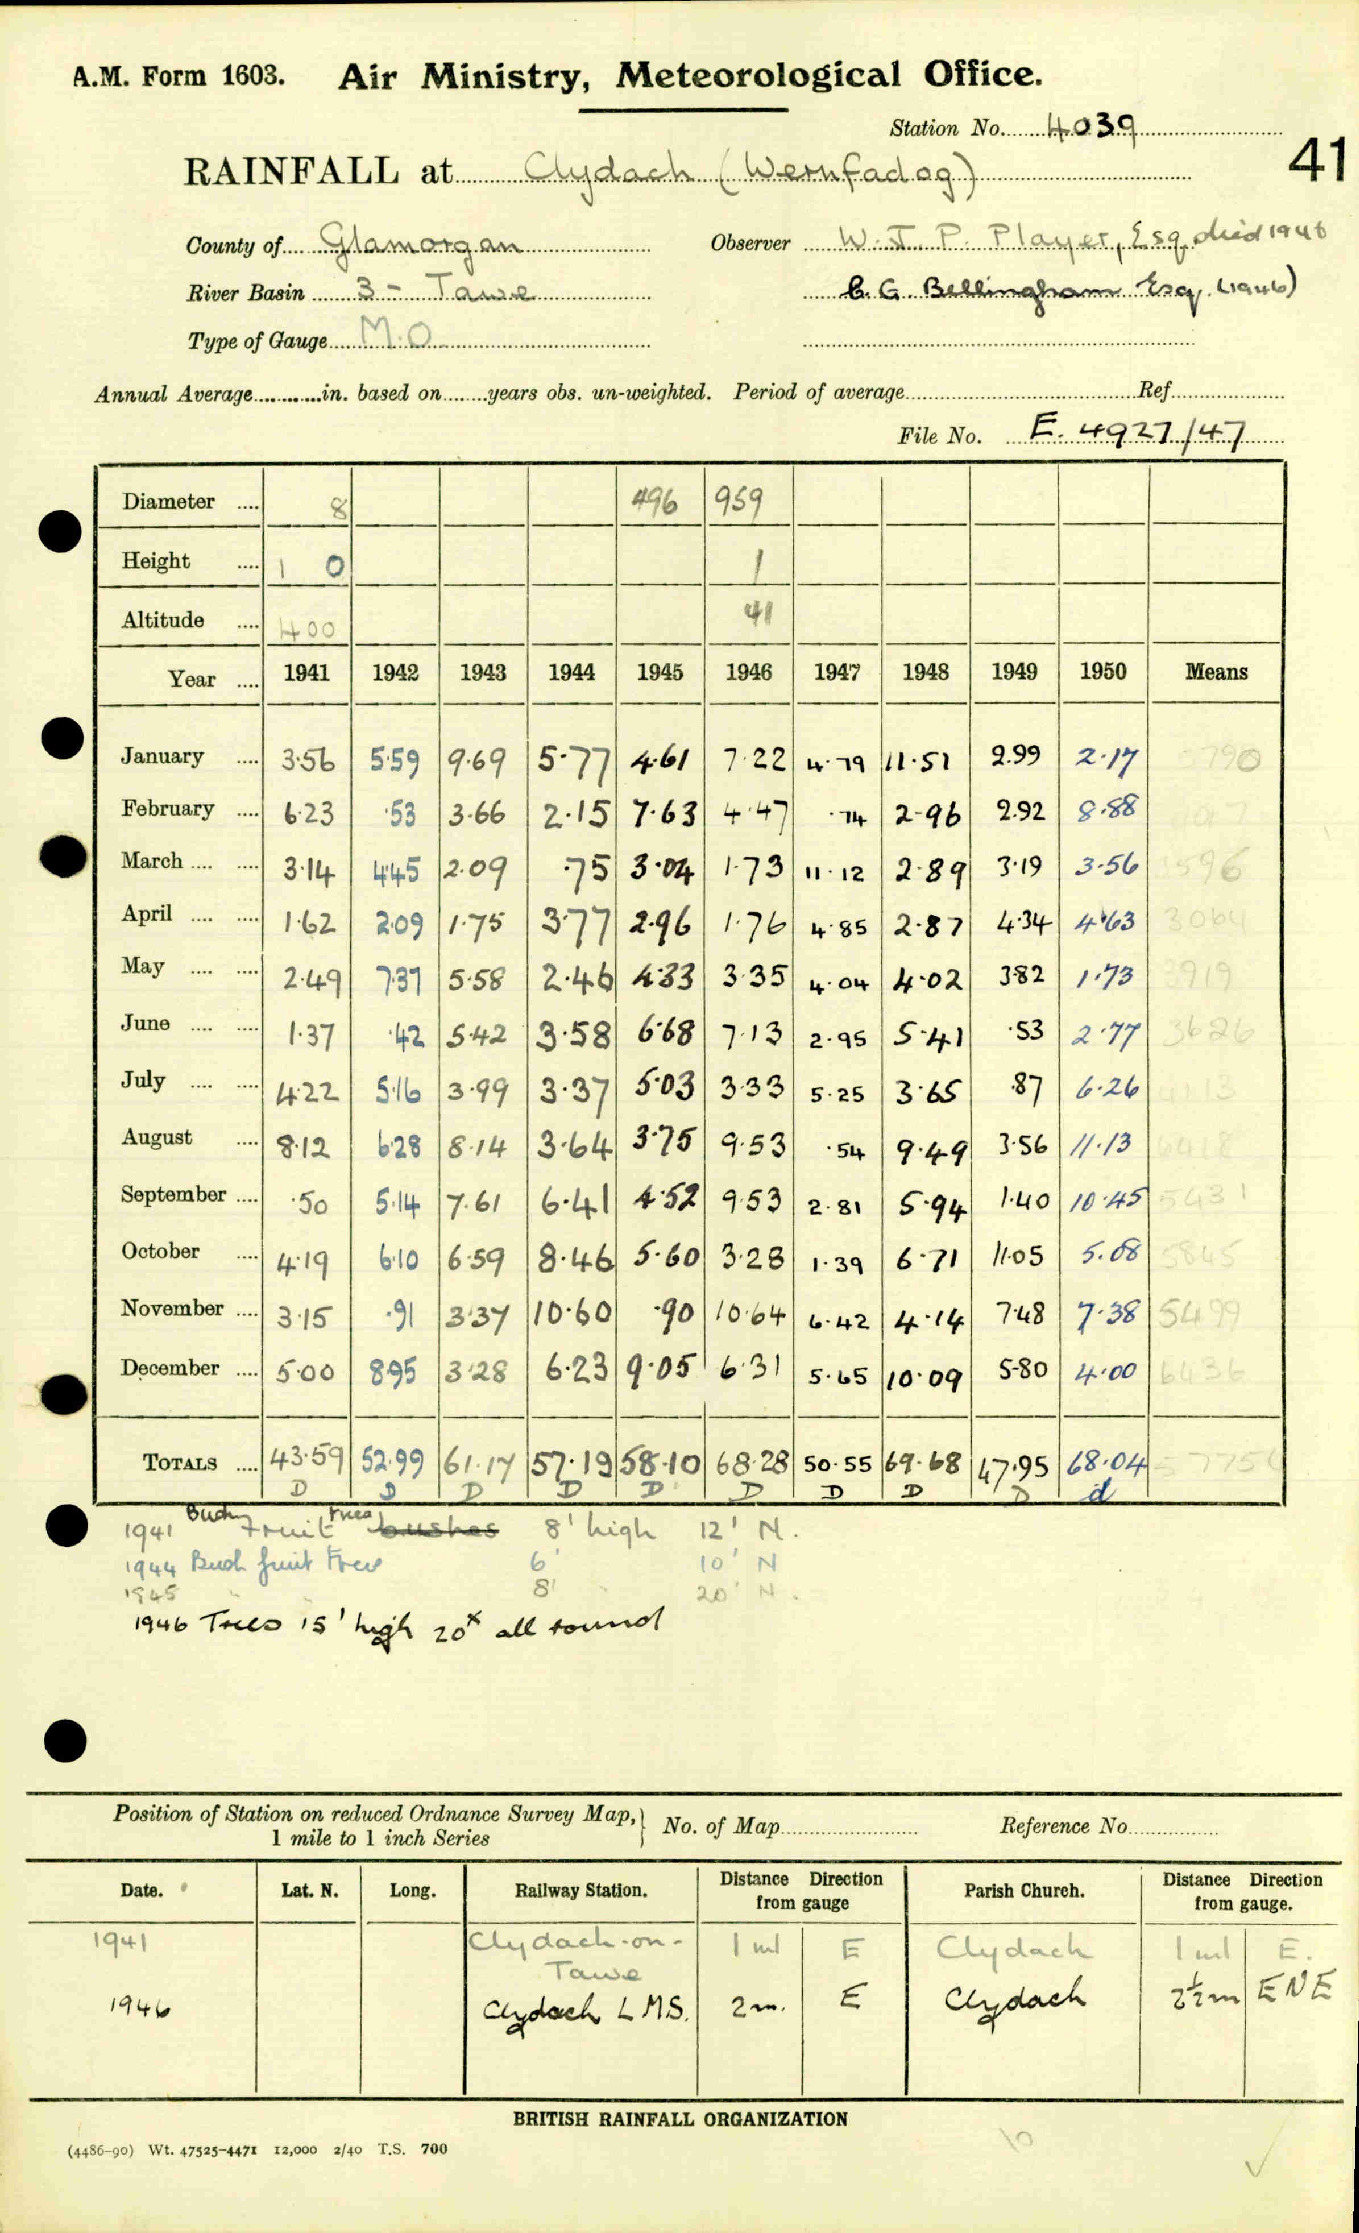 A.M. Form 1603. Air Ministry, Meteorological Office.
Station No. 4039
41
RAINFALL at Clydach (Wernfadog)
County of Glamorgan Observer W. J. P. Player, Esq. died 1946
River Basin 3 - Tawe C. G. Bellingham Esq. (1946)
Type of Gauge M.O.
Annual Average in. based on years obs. un-weighted. Period of average Ref
File No. E. 4927/47
Diameter .... 8 496 959
Height .... 1 0 1
Altitude .... 400 41
Year .... 1941 1942 1943 1944 1945 1946 1947 1948 1949 1950 Means
January .... 3.56 5.59 9.69 5.77 4.61 7.22 4.79 11.51 2.99 2.17 790
February .... 6.23 .53 3.66 2.15 7.63 4.47 .74 2.96 2.92 8.88
March .... .... 3.14 4.45 2.09 .75 3.04 1.73 11.12 2.89 3.19 3.56 3596
April .... .... 1.62 2.09 1.75 3.77 2.96 1.76 4.85 2.87 4.34 4.63 3064
May .... .... 2.49 7.37 5.58 2.46 4.33 3.35 4.04 4.02 3.82 1.73 3919
June .... .... 1.37 .42 5.42 3.58 6.68 7.13 2.95 5.41 .53 2.77 3626
July .... .... 4.22 5.16 3.99 3.37 5.03 3.33 5.25 3.65 .87 6.26 4113
August .... 8.12 6.28 8.14 3.64 3.75 9.53 .54 9.49 3.56 11.13 6418
September .... .50 5.14 7.61 6.41 4.52 9.53 2.81 5.94 1.40 10.45 5431
October .... 4.19 6.10 6.59 8.46 5.60 3.28 1.39 6.71 11.05 5.08 5845
November .... 3.15 .91 3.37 10.60 .90 10.64 6.42 4.14 7.48 7.38 5499
December .... 5.00 8.95 3.28 6.23 9.05 6.31 5.65 10.09 5.80 4.00 6436
TOTALS .... 43.59 52.99 61.17 57.19 58.10 68.28 50.55 69.68 47.95 68.04 57754
D D D D D D D D D d
1941 Bush Fruit Trees bushes 8' high 12' N.
1944 Bush fruit Trees 6' 10' N
1945 " " 8' " 20' N.
1946 Trees 15' high 20x all round
Position of Station on reduced Ordnance Survey Map, } No. of Map Reference No.
1 mile to 1 inch Series
Date. Lat. N. Long. Railway Station. Distance Direction from gauge Parish Church. Distance Direction from gauge.
1941 Clydach-on-Tawe 1 ml E Clydach 1 ml E.
1946 Clydach L M S. 2 m. E Clydach 2½ m ENE
BRITISH RAINFALL ORGANIZATION
(4486-90) Wt. 47525-4471 12,000 2/40 T.S. 700
10